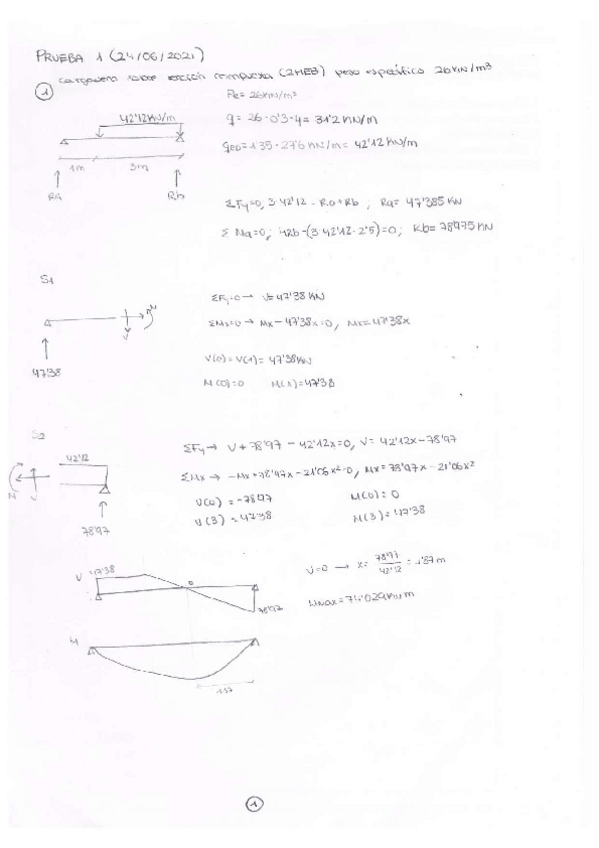 PRUEBA 1 (24/06/2021)
① Cargadero sobre sección compuesta (2HEB) peso específico 26 kN/m³
Pe = 26 kN/m³
42'12 kN/m
q = 26·0'3·4 = 31'2 kN/m
qED = 1'35·27'6 kN/m = 42'12 kN/m
1m 3m
Ra Rb
ΣFy=0, 3·42'12 - Ra+Rb ; Ra= 47'385 kN
Σ Ma=0; 4Rb-(3·42'12·2'5)=0; Rb= 78'975 kN
S1
ΣFy=0 → V=47'38 kN
M
V
ΣMx=0 → Mx - 47'38x=0, Mx=47'38x
47'38
V(0)=V(1)= 47'38 kN
M(0)=0 M(1)=47'38
S2
42'12
M V
78'97
ΣFy → V + 78'97 - 42'12x=0, V= 42'12x-78'97
ΣMx → -Mx+78'97x-21'06x²=0, Mx=78'97x-21'06x²
V(0) = -78'97 M(0): 0
V(3) = 47'38 M(3)= 47'38
V 47'38 0
78'97
V=0 → x= 78'97/42'12 = 1'87m
Mmax=74'029 kN m
M
1'87
1